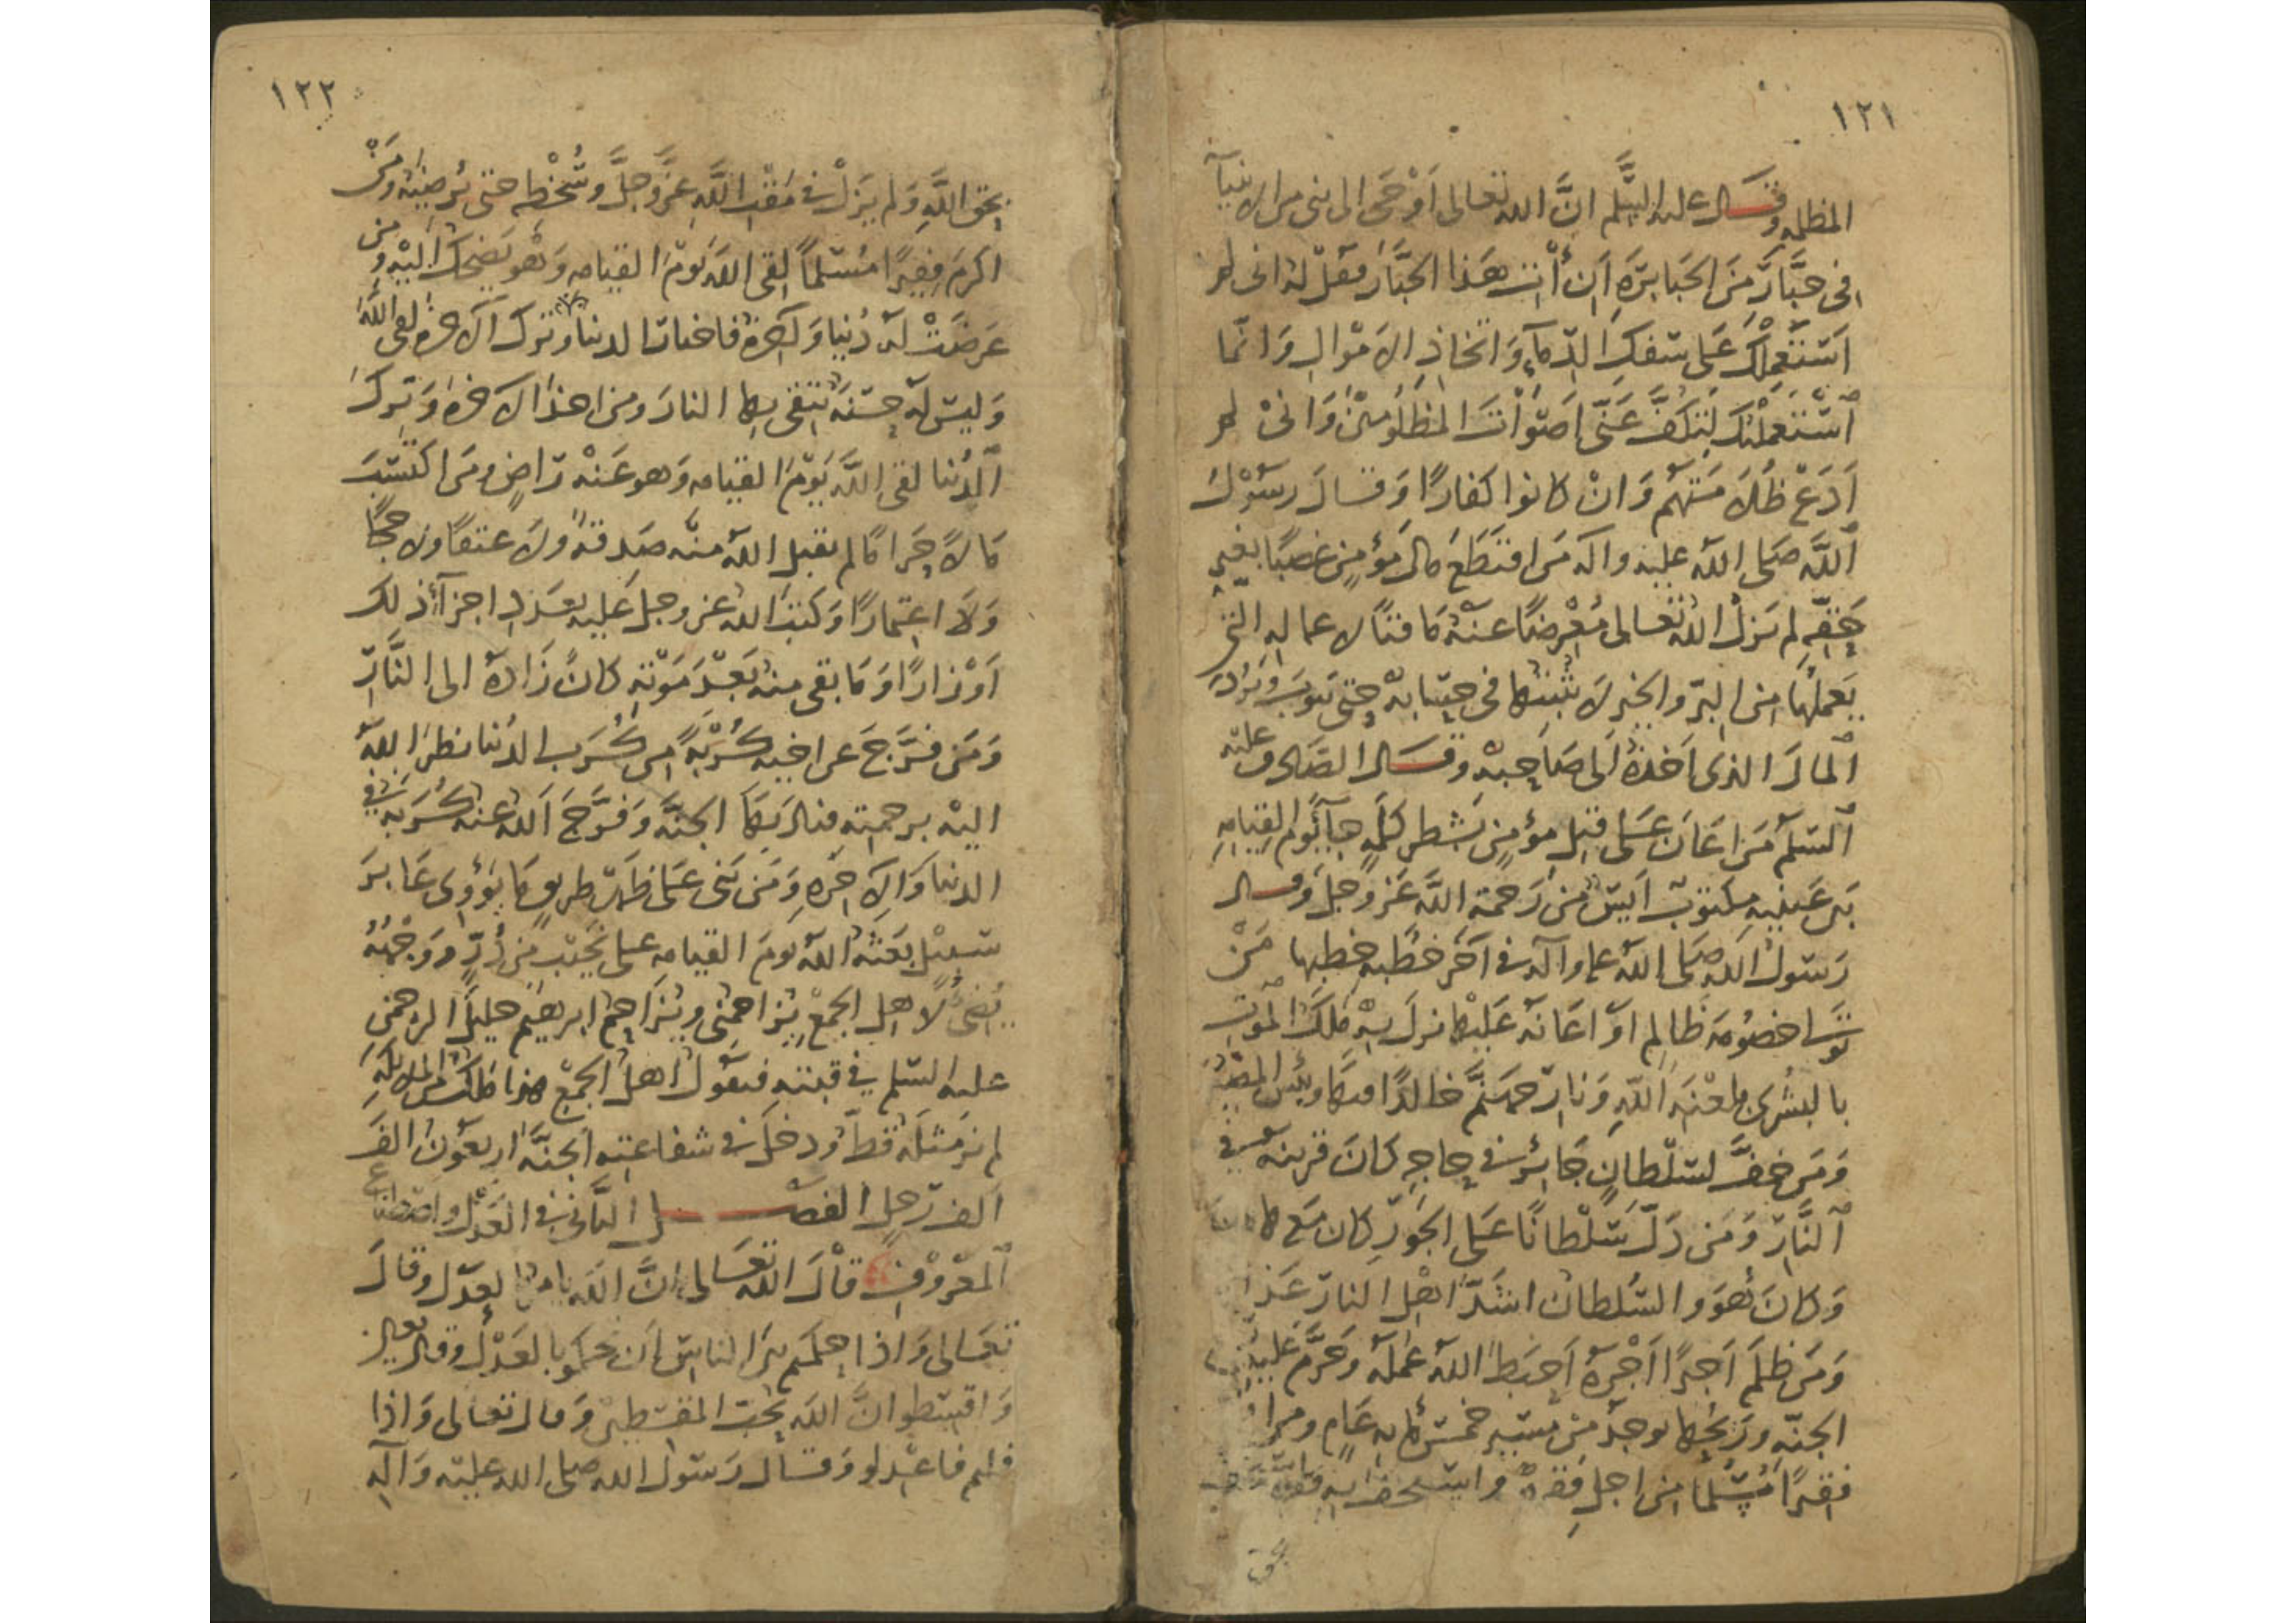 ١٢١
المظلمه وقال عليه السلم ان الله تعالى اوحى الى نبى من الانبيآ
فى جبار من الجبابره ان ائت هذا الجبار فقل له انى لم
استعملك على سفك الدمآء واتخاذ الاموال وانما
استعملتك لتكف عنى اصوات المظلومين وانى لم
ادع ظلامتهم وان كانوا كفارا وقال رسول
الله صلى الله عليه واله من اقتطع مال مؤمن غصبا بغير
حقه لم يزل الله تعالى معرضا عنه ماقتا لاعماله التى
يعملها من البر والخير لا يثبتها فى حسناته حتى يتوب ويرد
المال الذى اخذه الى صاحبه وقال الصادق عليه
السلم من اعان على قتل مؤمن بشطر كلمة جآء يوم القيامه
بين عينيه مكتوب ايس من رحمة الله عز وجل وقال
رسول الله صلى الله عليه وآله فى آخر خطبه خطبها من
تولى خصومة ظالم او اعانه عليها نزل به ملك الموت
بالبشرى بلعنة الله ونار جهنم خالدا فيها وبئس المصير
ومن خف لسلطان جائر فى حاجه كان قرينه فى
النار ومن دل سلطانا على الجور كان مع هامان
وكان هو والسلطان اشد اهل النار عذابا
ومن ظلم اجيرا اجره احبط الله عمله وحرم عليه
الجنة وريحها يوجد من مسير خمسمائه عام ومن
فقيرا مسلما من اجل فقره واستخف به فقد استخف
بحق
١٢٢
بحق الله ولم يزل فى مقت الله عز وجل وسخطه حتى يرضيه ومن
اكرم فقيرا مسلما لقى الله يوم القيامه وهو يضحك اليه ومن
عرضت له دنيا وآخرة فاختار الدنيا وترك الآخره لقى الله
وليس له حسنة يتقى بها النار ومن اخذ الاخره وترك
الدنيا لقى الله يوم القيامه وهو عنه راض ومن اكتسب
مالا حراما لم يقبل الله منه صدقة ولا عتقا ولا حجا
ولا اعتمارا وكتب الله عز وجل عليه بعدد اجزآء ذلك
اوزارا وما بقى منه بعد موته كان زاده الى النار
ومن فرج عن اخيه كربة من كرب الدنيا نظر الله
اليه برحمته فنال بها الجنة وفرج الله عنه كربه فى
الدنيا والاخره ومن بنى على ظهر طريق ما يؤوى عابر
سبيل بعثه الله يوم القيامه على نجيب من در ووجهه
يضئ لاهل الجمع يزاحمنى ويزاحم ابرهيم خليل الرحمن
عليه السلم فى قبته فيقول اهل الجمع هذا ملك من الملائكه
لم نر مثله قط ودخل فى شفاعته الجنة اربعون الف
الف رجل الفصل الثانى فى العدل واصطناع
المعروف قال الله تعالى ان الله يامر بالعدل وقال
تعالى واذا حكمتم بين الناس ان تحكموا بالعدل وقال تعالى
واقسطوا ان الله يحب المقسطين وقال تعالى واذا
قلتم فاعدلوا وقال رسول الله صلى الله عليه وآله